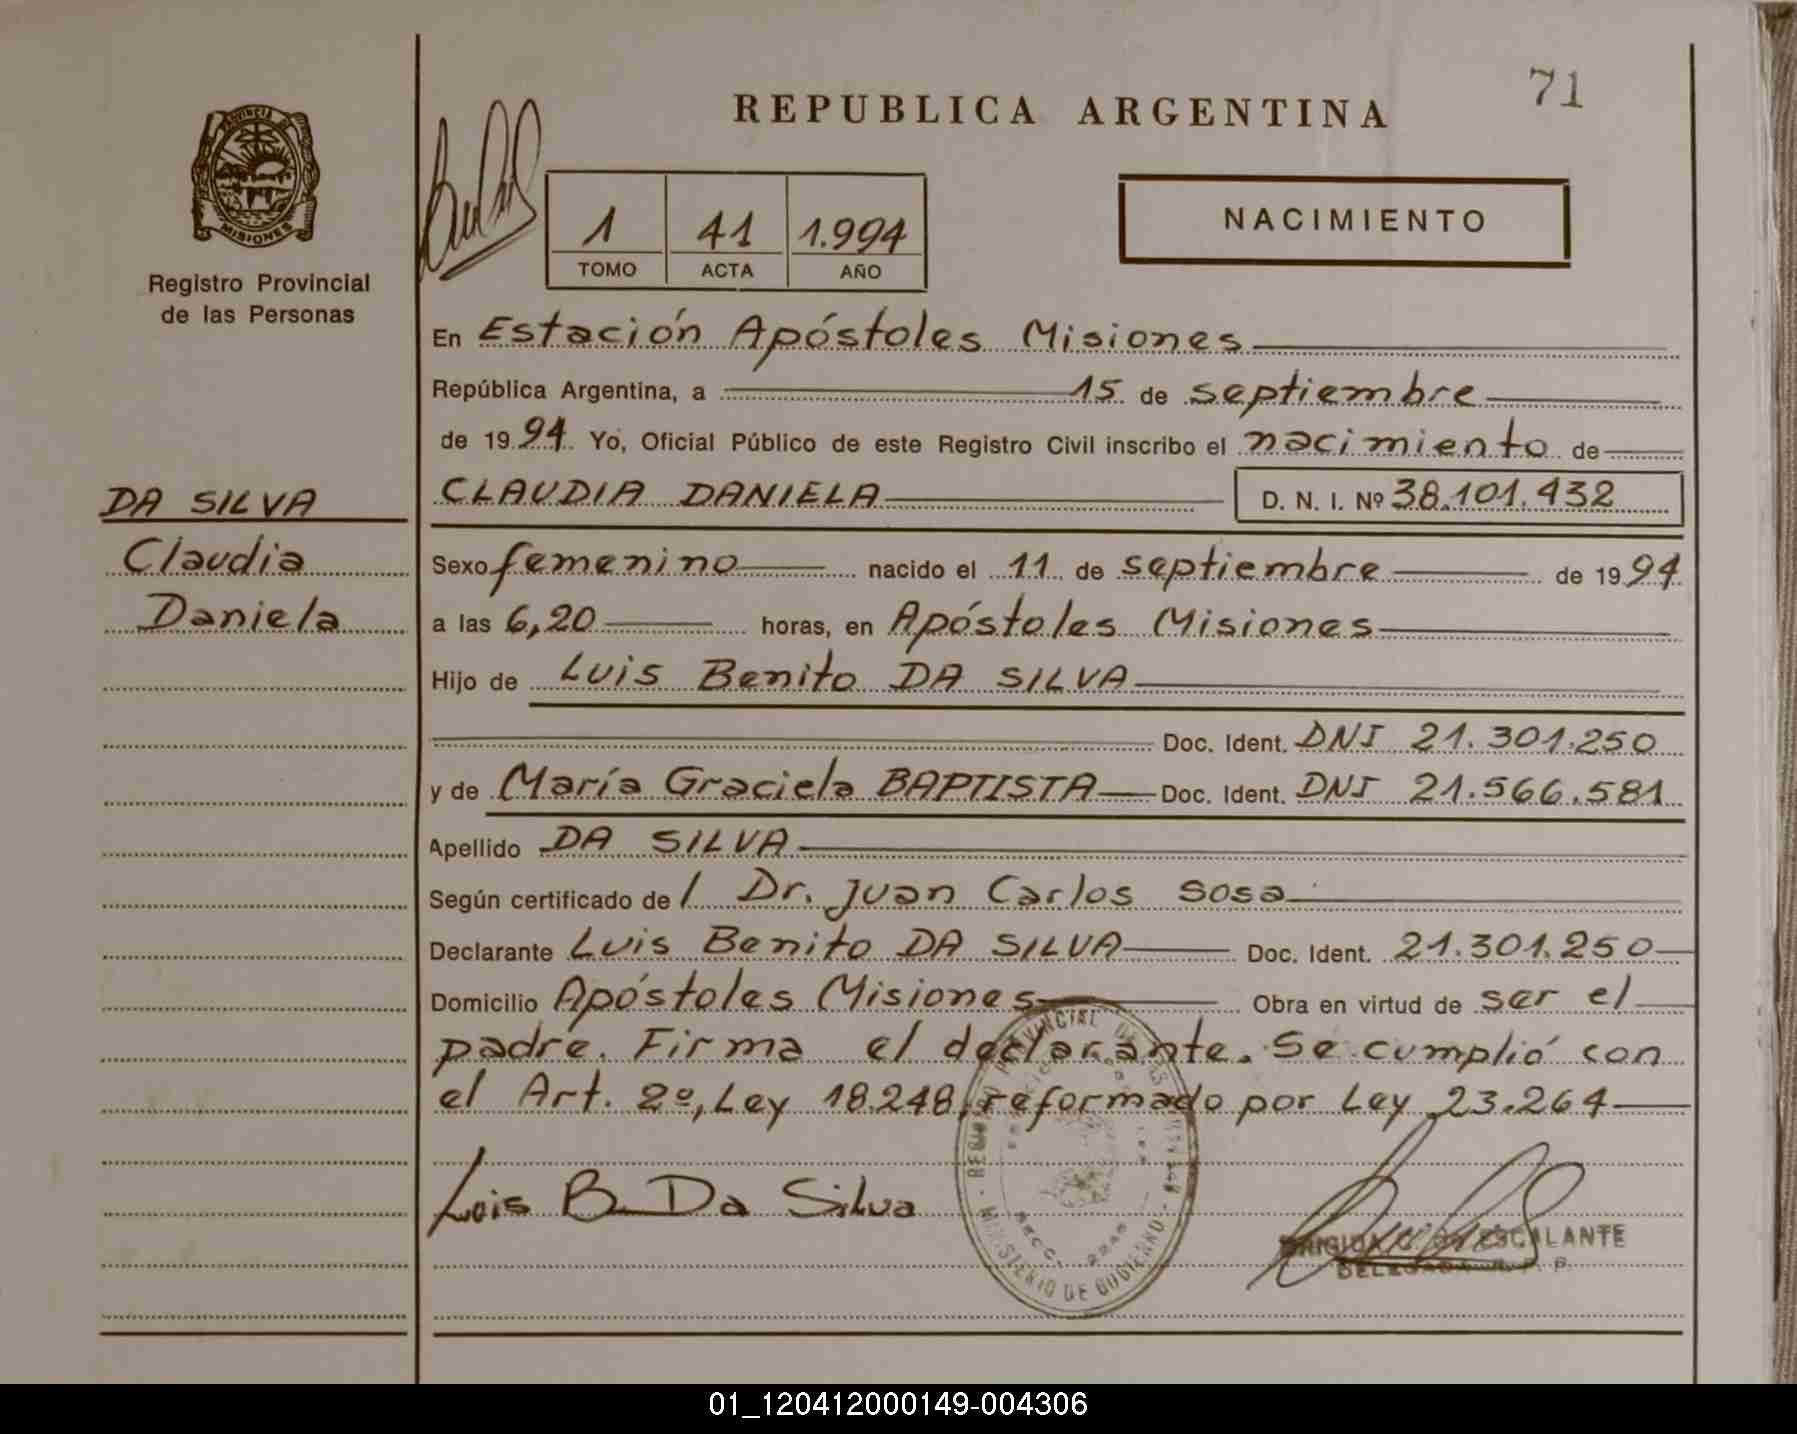 71
REPUBLICA ARGENTINA
PROVINCIA DE
MISIONES
Registro Provincial
de las Personas
1 41 1.994
TOMO ACTA AÑO
NACIMIENTO
En Estación Apóstoles Misiones
República Argentina, a 15 de septiembre
de 1994 Yo, Oficial Público de este Registro Civil inscribo el nacimiento de
DA SILVA
Claudia
Daniela
CLAUDIA DANIELA D. N. I. Nº 38.101.432
Sexo femenino nacido el 11 de septiembre de 1994
a las 6,20 horas, en Apóstoles Misiones
Hijo de Luis Benito DA SILVA
Doc. Ident. DNI 21.301.250
y de María Graciela BAPTISTA Doc. Ident. DNI 21.566.581
Apellido DA SILVA
Según certificado de / Dr. Juan Carlos Sosa
Declarante Luis Benito DA SILVA Doc. Ident. 21.301.250
Domicilio Apóstoles Misiones Obra en virtud de ser el
padre. Firma el declarante. Se cumplió con
el Art. 2º, Ley 18.248, reformado por Ley 23.264
Luis B Da Silva
REGISTRO PROVINCIAL DE LAS PERSONAS
MINISTERIO DE GOBIERNO
BRIGIDA C. DE ESCALANTE
DELEGADA R. P. P.
01_120412000149-004306